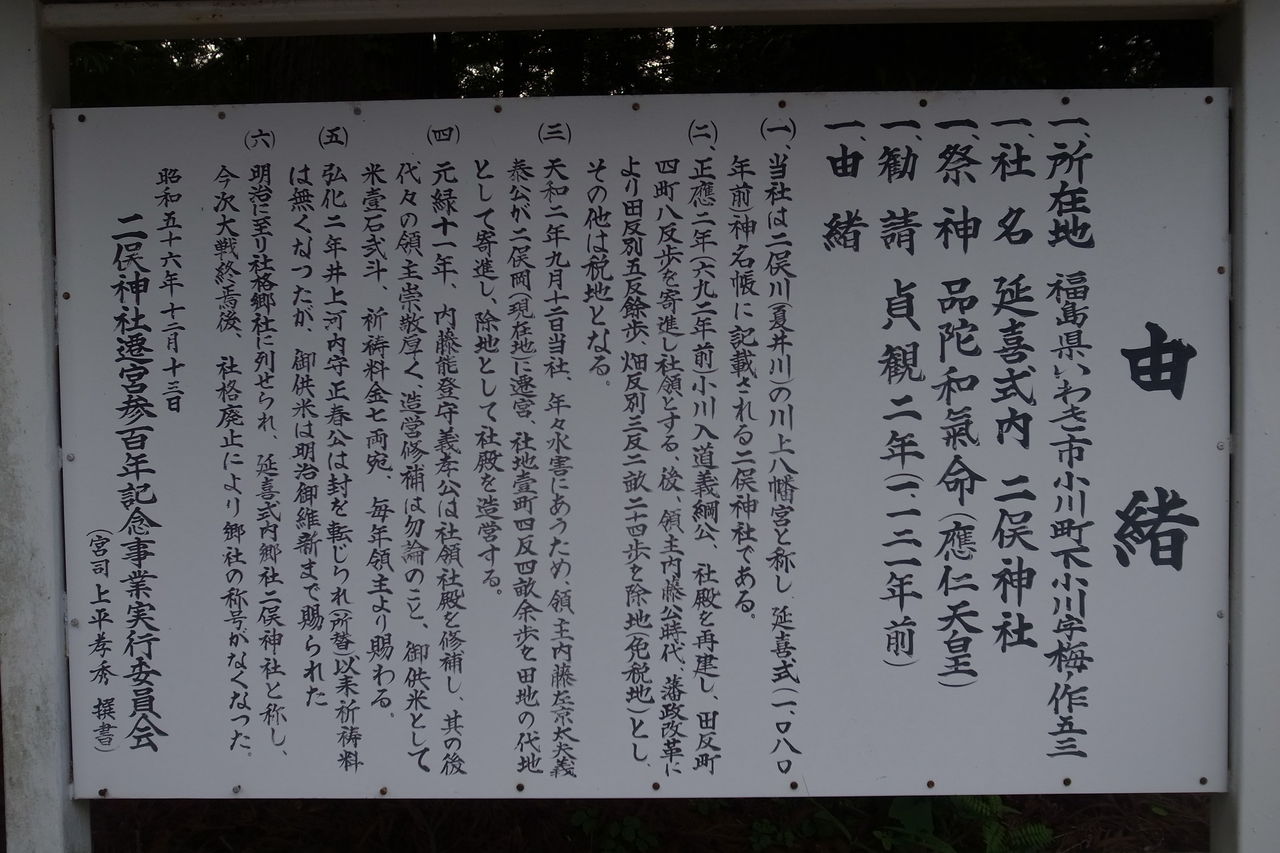 由緒
一、所在地 福島県いわき市小川町下小川字梅ノ作五三
一、社名 延喜式内 二俣神社
一、祭神 品陀和氣命(應仁天皇)
一、勧請 貞観二年(一、一二一年前)
一、由緒
(一)、当社は二俣川(夏井川)の川上八幡宮と称し 延喜式(一、〇八〇
年前)神名帳に記載される二俣神社である。
(二)、正應二年(六九二年前)小川入道義綱公、社殿を再建し、田反町
四町八反歩を寄進し社領とする、後、領主内藤公時代、藩政改革に
より田反別五反餘歩、畑反別三反二畝二十四歩を除地(免税地)とし、
その他は税地となる。
(三)天和二年九月十二日当社、年々水害にあうため、領主内藤左京太夫義
泰公が二俣岡(現在地)に遷宮、社地壹町四反四畝余歩を田地の代地
として寄進し、除地として社殿を造営する。
(四)元緑十一年、内藤能登守義孝公は社領社殿を修補し、其の後
代々の領主崇敬厚く、造営修補は勿論のこと、御供米として
米壹石弐斗、祈祷料金七両宛、毎年領主より賜わる。
(五)弘化二年井上河内守正春公は封を転じられ(所替)以来祈祷料
は無くなつたが、御供米は明治御維新まで賜られた
(六)明治に至り社格郷社に列せられ、延喜式内郷社二俣神社と称し、
今次大戦終焉後、社格廃止により郷社の称号がなくなつた。
昭和五十六年十二月十三日
二俣神社遷宮参百年記念事業実行委員会
(宮司 上平孝秀 撰書)